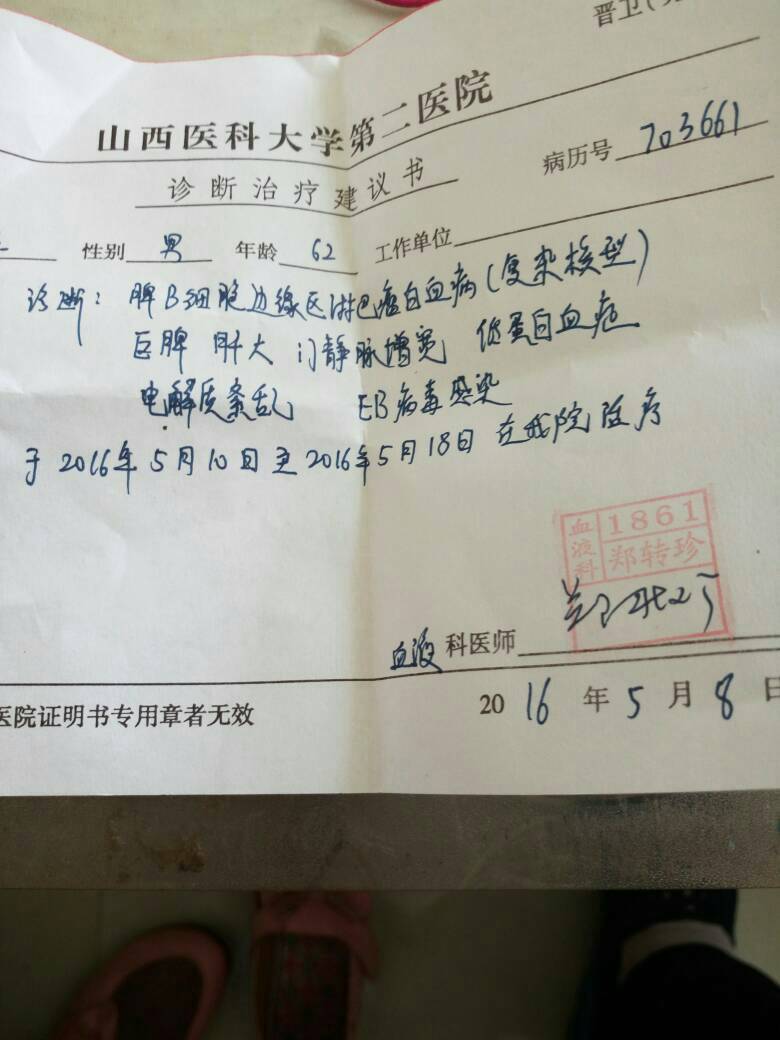 晋卫(
山西医科大学第二医院
诊断治疗建议书
病历号 703661
性别 男 年龄 62 工作单位
诊断: 脾B细胞边缘区淋巴瘤白血病(复杂核型)
巨脾 肝大 门静脉增宽 低蛋白血症
电解质紊乱 EB病毒感染
于2016年5月10日至2016年5月18日在我院住院
血液科
1861
郑转珍
血液 科医师
2016年5月8日
医院证明书专用章者无效